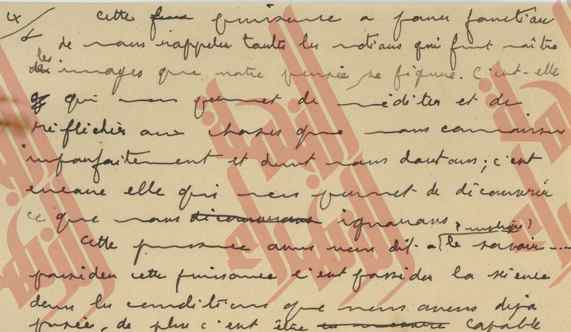 ix/ cette puissance a pour fonction
de nous rappeler toutes les notions qui font naître
les images que notre pensée se figure. C'est elle
qui nous permet de méditer et de
réfléchir aux choses que nous connaissons
imparfaitement et dont nous doutons; c'est
encore elle qui nous permet de découvrir
ce que nous ignorons
Cette puissance avons nous dit a le savoir
posséder cette puissance c'est posséder la science
dans les conditions que nous avons déjà
posées, de plus c'est être capable